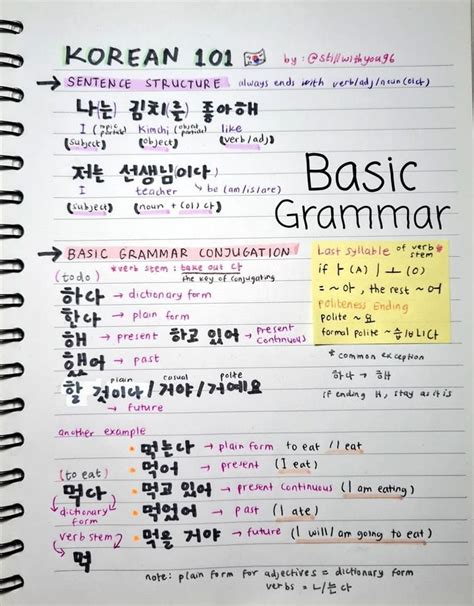 KOREAN 101 🇰🇷 by : @stillwithyou96
→ SENTENCE STRUCTURE always ends with verb/adj/noun(이다)
나(는) 김치(를) 좋아해
I (topic particle) Kimchi (object particle) like
(subject) (object) (verb/adj)
저는 선생님이다
I teacher be (am/is/are)
(subject) (noun + (이) 다)
Basic
Grammar
→ BASIC GRAMMAR CONJUGATION
(to do) *verb stem : take out 다
the key of conjugating
하다 → dictionary form
한다 → plain form
해 → present 하고 있어 → present continuous
했어 → past
plain casual polite
할 것이다 / 거야 / 거예요
→ future
Last syllable of verb stem *
if ㅏ (A) | ㅗ (O)
= ~ 아, the rest ~ 어
politeness ending
polite ~ 요
formal polite ~ 습/ㅂ니다
* common exception
하다 → 해
if ending H, stay as it is
another example
(to eat)
먹다
dictionary form
verb stem
먹
• 먹는다 → plain form to eat / I eat
• 먹어 → present (I eat)
• 먹고 있어 → present continuous (I am eating)
• 먹었어 → past (I ate)
• 먹을 거야 → future (I will/am going to eat)
note: plain form for adjectives = dictionary form
verbs = ㄴ/는다